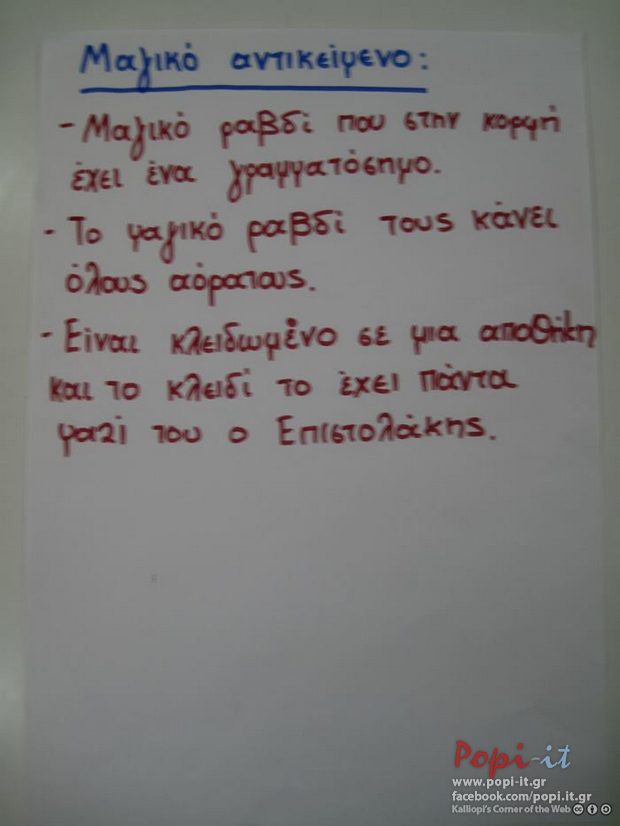 Μαγικό αντικείμενο:
- Μαγικό ραβδί που στην κορφή
έχει ένα γραμματόσημο.
- Το μαγικό ραβδί τους κάνει
όλους αόρατους.
- Είναι κλειδωμένο σε μια αποθήκη
και το κλειδί το έχει πάντα
μαζί του ο Επιστολάκης.
Popi-it
www.popi-it.gr
facebook.com/popi.it.gr
Kalliopi's Corner of the Web